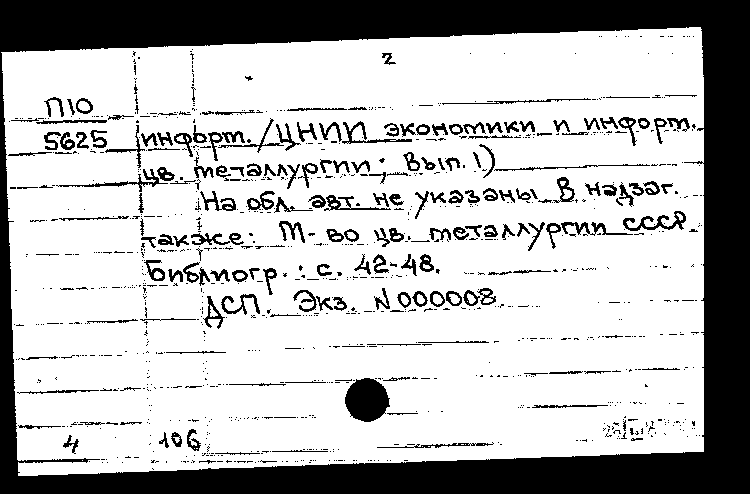 2
П10
5625
информ. /ЦНИИ экономики и информ.
цв. металлургии; Вып. 1)
На обл. авт. не указаны. В надзаг.
также: М-во цв. металлургии СССР.
Библиогр.: с. 42-48.
ДСП. Экз. N000008.
4 106